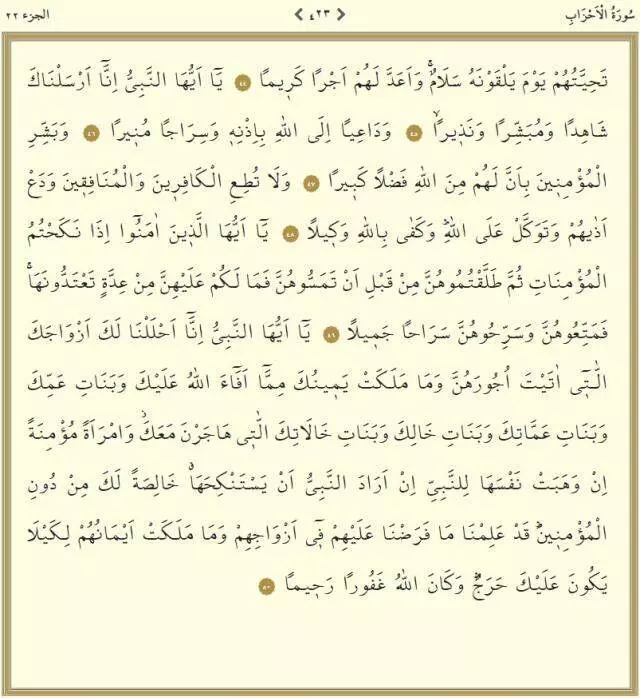 سُورَةُ الْاَحْزَابِ ٤٢٣ الجزء ٢٢
تَحِيَّتُهُمْ يَوْمَ يَلْقَوْنَهُ سَلَامٌۚ وَاَعَدَّ لَهُمْ اَجْرًا كَر۪يمًا ٤٤ يَٓا اَيُّهَا النَّبِيُّ اِنَّٓا اَرْسَلْنَاكَ
شَاهِدًا وَمُبَشِّرًا وَنَذ۪يرًاۙ ٤٥ وَدَاعِيًا اِلَى اللّٰهِ بِاِذْنِه۪ وَسِرَاجًا مُن۪يرًا ٤٦ وَبَشِّرِ
الْمُؤْمِن۪ينَ بِاَنَّ لَهُمْ مِنَ اللّٰهِ فَضْلًا كَب۪يرًا ٤٧ وَلَا تُطِعِ الْكَافِر۪ينَ وَالْمُنَافِق۪ينَ وَدَعْ
اَذٰيهُمْ وَتَوَكَّلْ عَلَى اللّٰهِۜ وَكَفٰى بِاللّٰهِ وَك۪يلًا ٤٨ يَٓا اَيُّهَا الَّذ۪ينَ اٰمَنُٓوا اِذَا نَكَحْتُمُ
الْمُؤْمِنَاتِ ثُمَّ طَلَّقْتُمُوهُنَّ مِنْ قَبْلِ اَنْ تَمَسُّوهُنَّ فَمَا لَكُمْ عَلَيْهِنَّ مِنْ عِدَّةٍ تَعْتَدُّونَهَاۚ
فَمَتِّعُوهُنَّ وَسَرِّحُوهُنَّ سَرَاحًا جَم۪يلًا ٤٩ يَٓا اَيُّهَا النَّبِيُّ اِنَّٓا اَحْلَلْنَا لَكَ اَزْوَاجَكَ
الّٰت۪ٓي اٰتَيْتَ اُجُورَهُنَّ وَمَا مَلَكَتْ يَم۪ينُكَ مِمَّٓا اَفَٓاءَ اللّٰهُ عَلَيْكَ وَبَنَاتِ عَمِّكَ
وَبَنَاتِ عَمَّاتِكَ وَبَنَاتِ خَالِكَ وَبَنَاتِ خَالَاتِكَ الّٰت۪ي هَاجَرْنَ مَعَكَۘ وَامْرَاَةً مُؤْمِنَةً
اِنْ وَهَبَتْ نَفْسَهَا لِلنَّبِيِّ اِنْ اَرَادَ النَّبِيُّ اَنْ يَسْتَنْكِحَهَاۗ خَالِصَةً لَكَ مِنْ دُونِ
الْمُؤْمِن۪ينَۜ قَدْ عَلِمْنَا مَا فَرَضْنَا عَلَيْهِمْ ف۪ٓي اَزْوَاجِهِمْ وَمَا مَلَكَتْ اَيْمَانُهُمْ لِكَيْلَا
يَكُونَ عَلَيْكَ حَرَجٌۜ وَكَانَ اللّٰهُ غَفُورًا رَح۪يمًا ٥٠